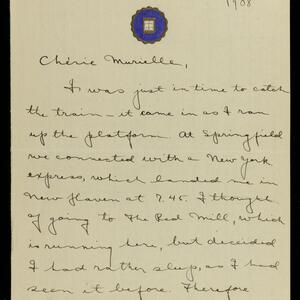 1908
Chérie Murielle,
I was just in time to catch
the train – it came in as I ran
up the platform. At Springfield
we connected with a New York
express, which landed me in
New Haven at 7.45. I thought
of going to The Red Mill, which
is running here, but decided
I had rather sleep, as I had
seen it before. Therefore